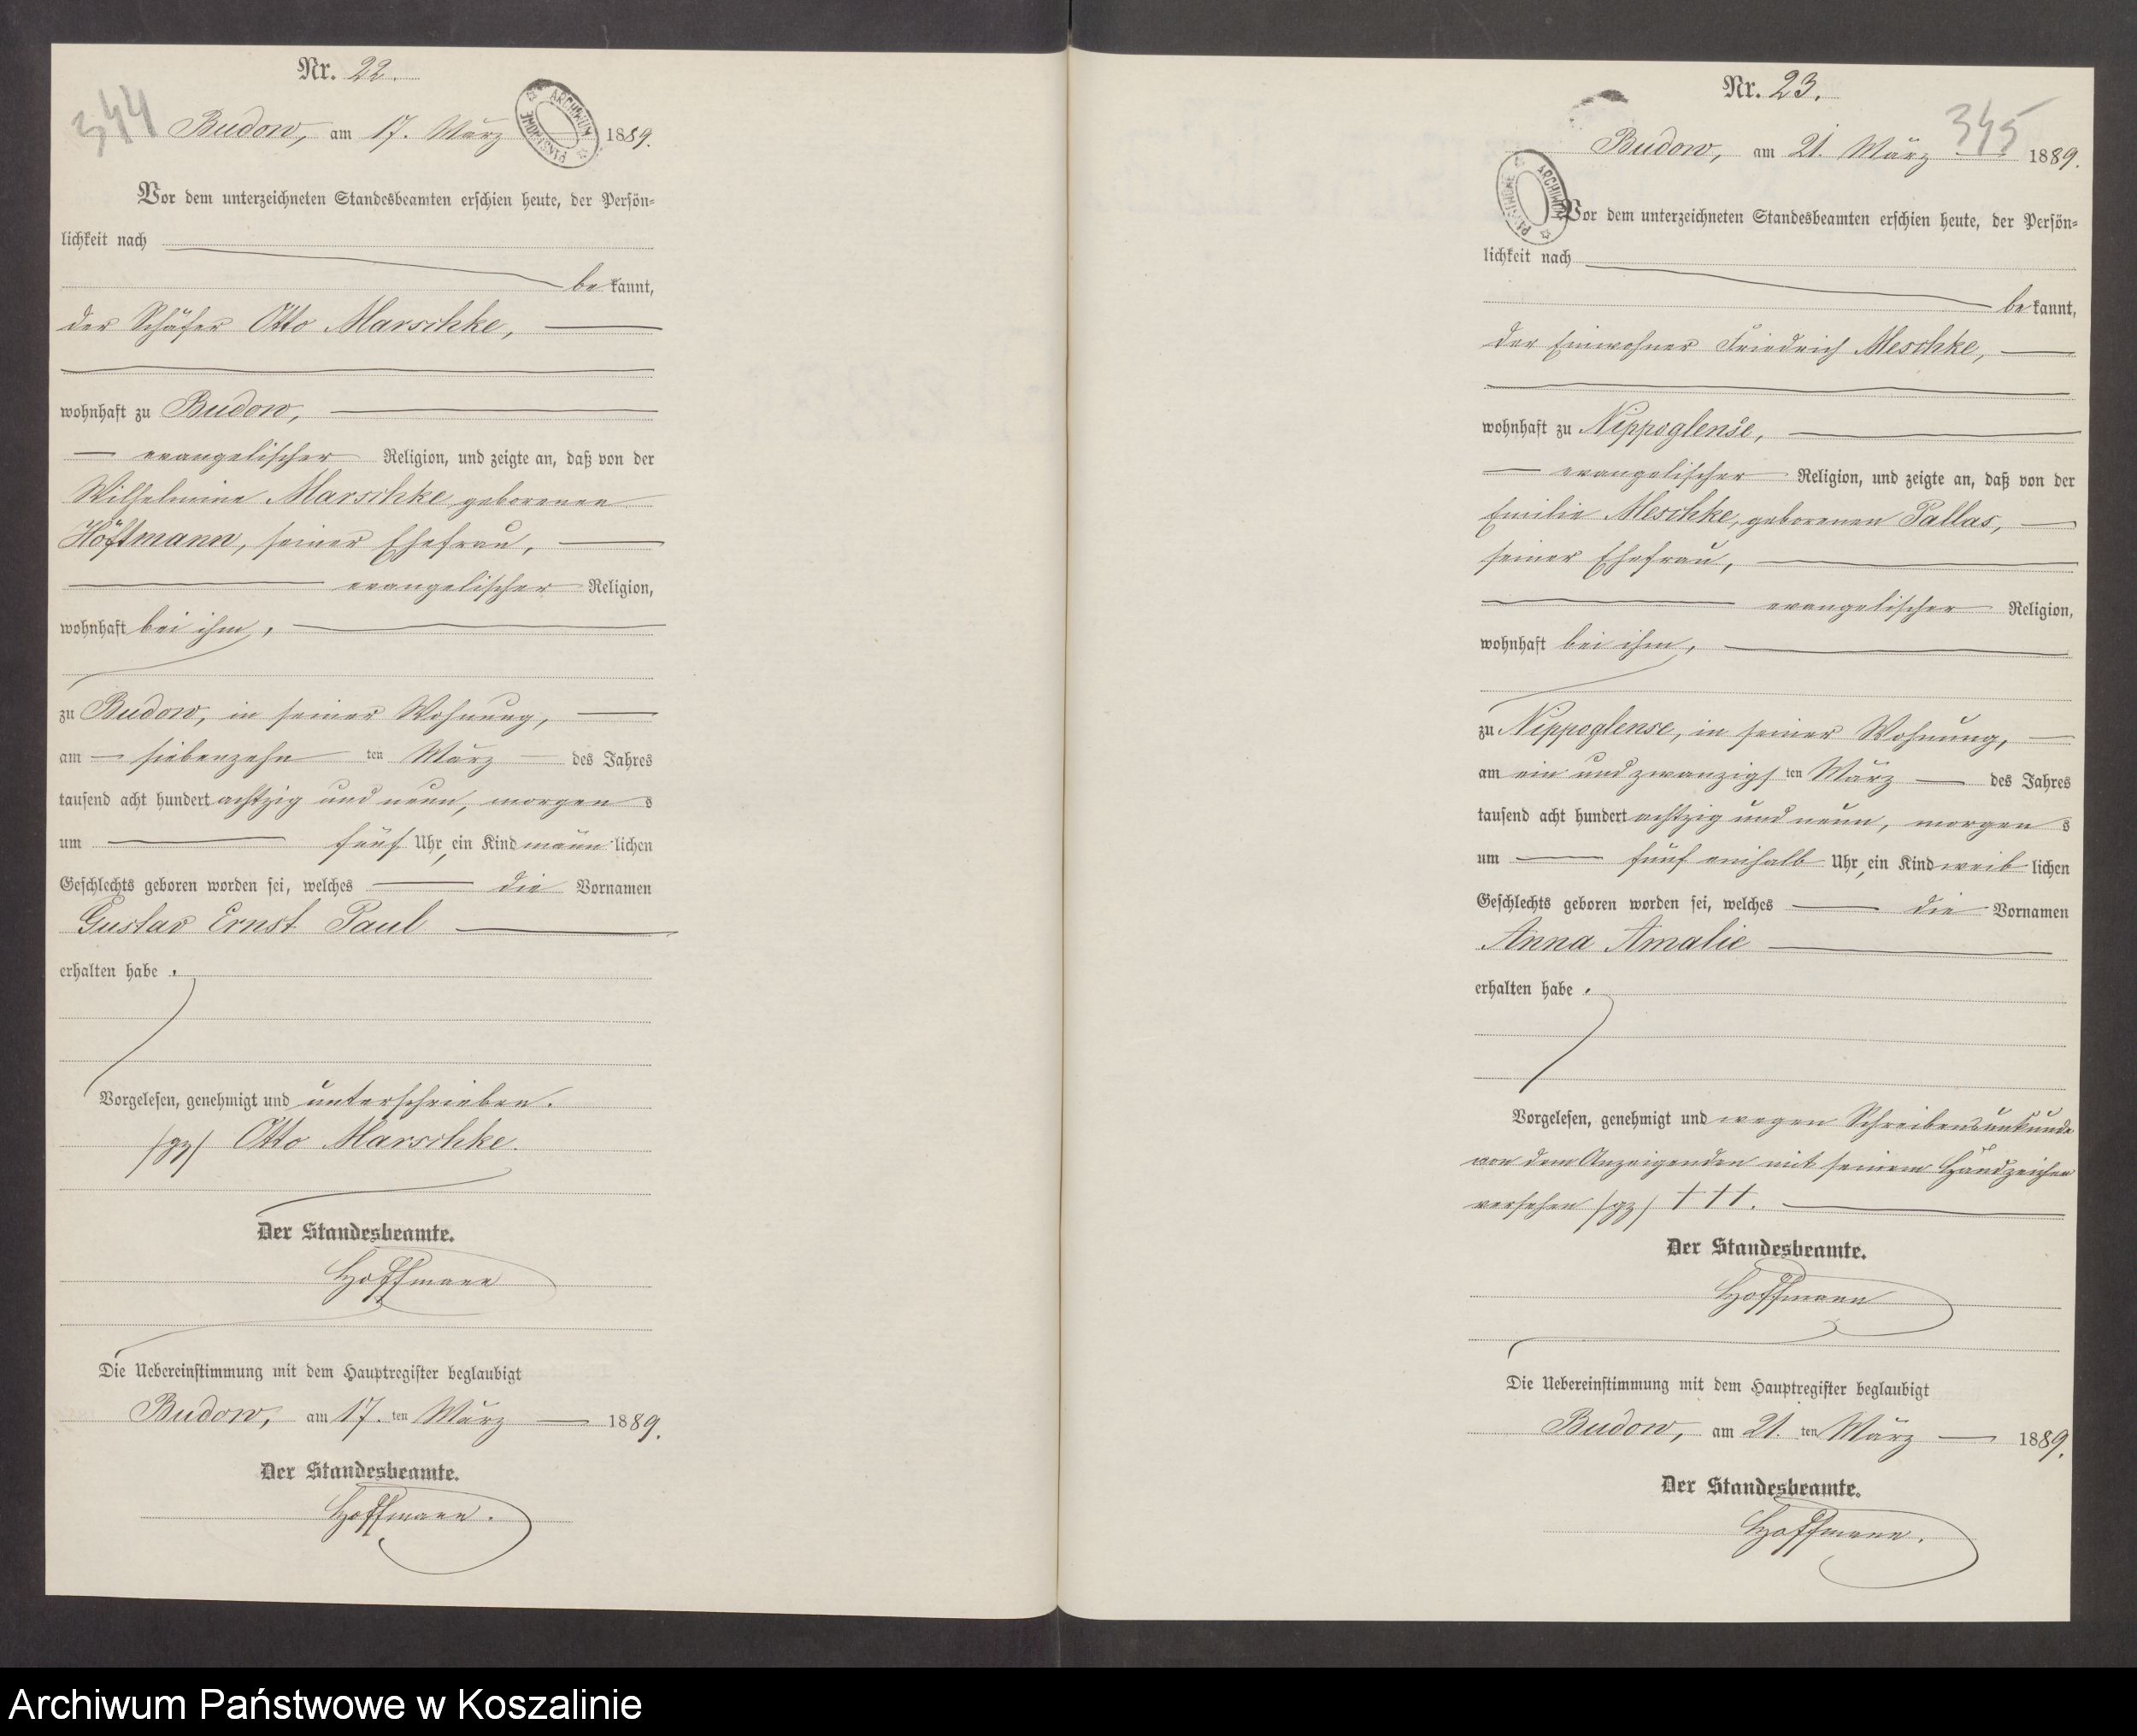 Nr. 22.
344
Budow, am 17. März 1889.
ARCHIWUM PAŃSTWOWE
Vor dem unterzeichneten Standesbeamten erschien heute, der Persön=
lichkeit nach
be kannt,
der Schäfer Otto Marschke,
wohnhaft zu Budow,
evangelischer Religion, und zeigte an, daß von der
Wilhelmine Marschke geborenen
Höftmann, seiner Ehefrau,
evangelischer Religion,
wohnhaft bei ihm,
zu Budow, in seiner Wohnung,
am siebenzehn ten März des Jahres
tausend acht hundert achtzig und neun, morgen s
um fünf Uhr, ein Kind männ lichen
Geschlechts geboren worden sei, welches die Vornamen
Gustav Ernst Paul
erhalten habe.
Vorgelesen, genehmigt und unterschrieben.
/gz/ Otto Marschke.
Der Standesbeamte.
Hoffmann
Die Uebereinstimmung mit dem Hauptregister beglaubigt
Budow, am 17. ten März 1889.
Der Standesbeamte.
Hoffmann.
Nr. 23.
345
Budow, am 21. März 1889.
ARCHIWUM PAŃSTWOWE
Vor dem unterzeichneten Standesbeamten erschien heute, der Persön=
lichkeit nach
be kannt,
der Einwohner Friedrich Meschke,
wohnhaft zu Nippoglense,
evangelischer Religion, und zeigte an, daß von der
Emilie Meschke, geborenen Pallas,
seiner Ehefrau,
evangelischer Religion,
wohnhaft bei ihm,
zu Nippoglense, in seiner Wohnung,
am ein und zwanzigs ten März des Jahres
tausend acht hundert achtzig und neun, morgen s
um fünf einhalb Uhr, ein Kind weib lichen
Geschlechts geboren worden sei, welches die Vornamen
Anna Amalie
erhalten habe.
Vorgelesen, genehmigt und wegen Schreibensunkunde
von dem Anzeigenden mit seinem Handzeichen
versehen /gz/ †††.
Der Standesbeamte.
Hoffmann
Die Uebereinstimmung mit dem Hauptregister beglaubigt
Budow, am 21. ten März 1889.
Der Standesbeamte.
Hoffmann.
Archiwum Państwowe w Koszalinie